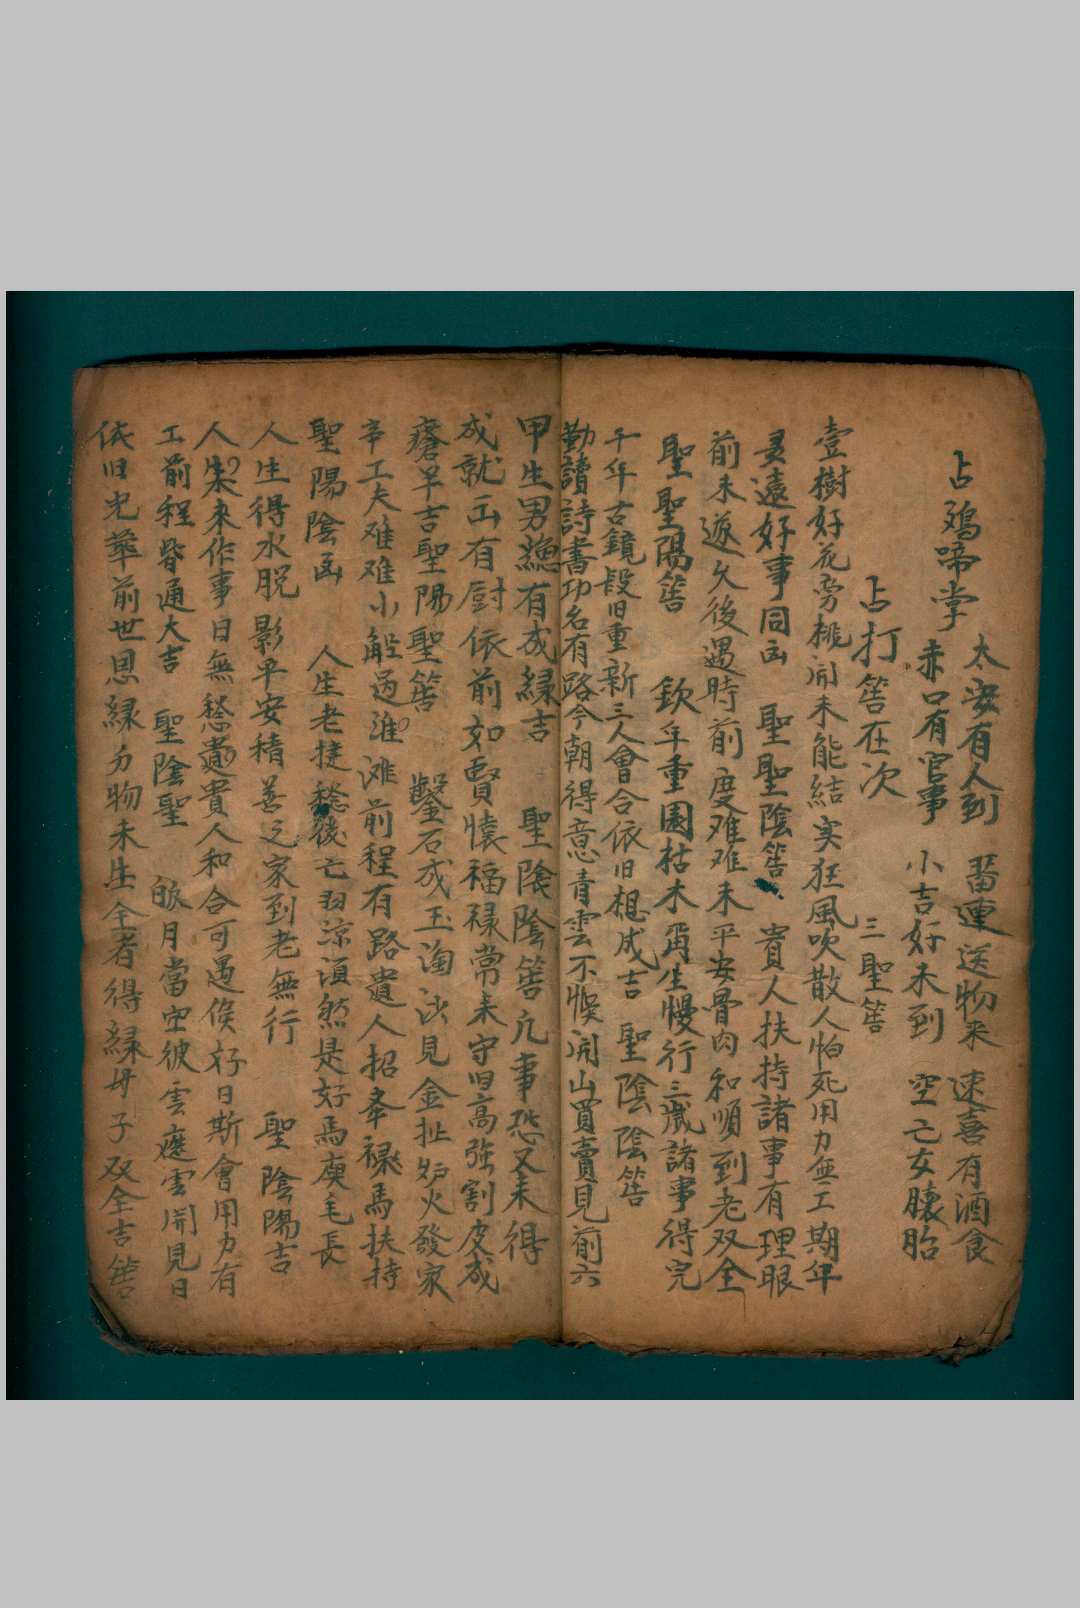 占鴉啼掌
太安有人到 畱連送物来 速喜有酒食
赤口有官事 小吉好未到 空亡女臁胎
占打筶在次 三聖筶
壹樹好花旁桃開未能結实狂風吹散人怕死用力無工期年
灵遠好事同凶 聖聖陰筶 貴人扶持諸事有理眼
前未遂久後遇時前度难难未平安骨肉和順到老双全
聖聖陽筶 欽年重園枯木再生慢行三歲諸事得完
千年古鏡叚旧重新三人會合依旧想成吉 聖陰陰筶
勤讀詩書功名有路今朝得意青雲不悞開山買賣見前六
甲生男㵖有成縁吉 聖陰陰筶凢事恐又未得
成就畄有厨依前如賢懐福禄常未守旧高強割皮成
瘡早吉聖陽聖筶 鑿石成玉淘沙見金扯炉火發家
辛工夫难难小船過淮滩前程有路遺人招奉禄馬扶持
聖陽陰凶 人生老捷愁後亡羽凉湏然是好馬庾毛長
人生得水脱影平安積善之家到老無行 聖陰陽吉
人朱来作事日無愁遺貴人和合可遇俟好日斯會用力有
工前程皆通大吉 聖陰聖 皈月當空彼雲遮雲開見日
依旧光華前世恩縁方物未生全者得縁母子双全吉筶